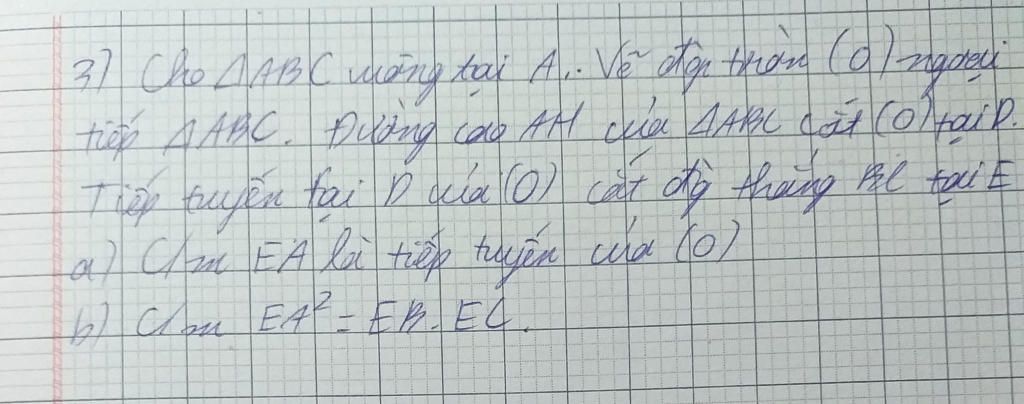 3) Cho ΔABC vuông tại A. Vẽ đg tròn (O) ngoại
tiếp ΔABC. Đường cao AH của ΔABC cắt (O) tại D.
Tiếp tuyến tại D của (O) cắt đg thẳng BC tại E
a) C/m EA là tiếp tuyến của (O)
b) C/m EA² = EB. EC.